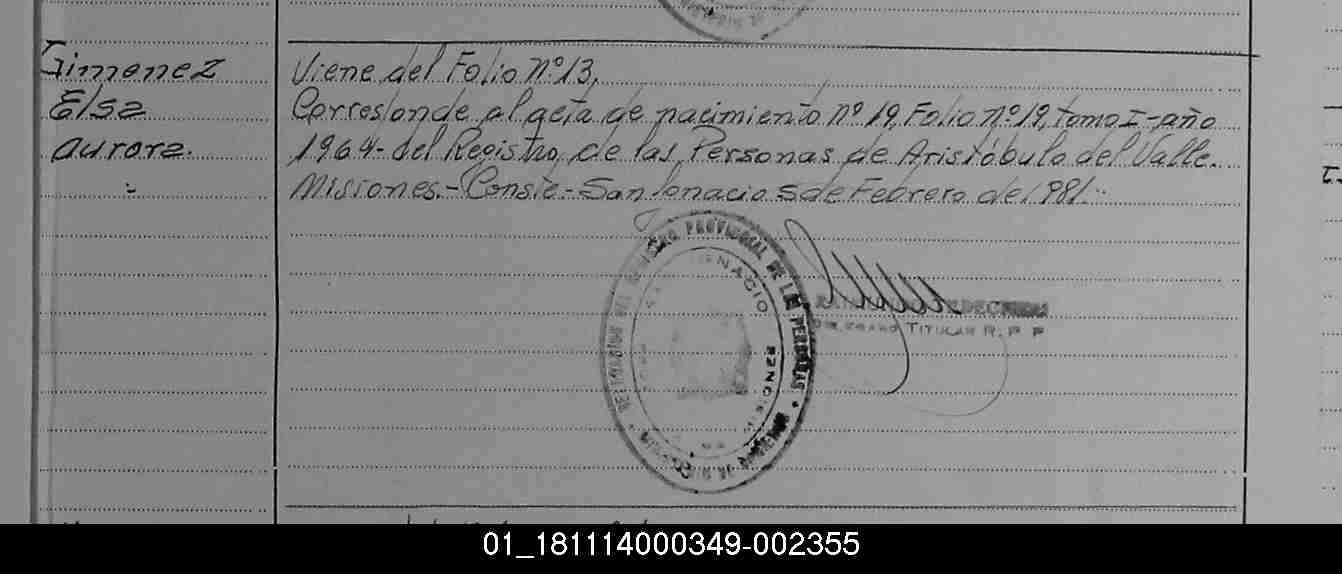 Gimenez
Elsa
Aurora.
Viene del Folio Nº 13,
Corresponde al acta de nacimiento nº 19, Folio nº 19, tomo I-año
1964- del Registro, de las Personas de Aristóbulo del Valle.
Misiones.- Conste.- San Ignacio 5 de Febrero de 1981.-
REGISTRO PROVINCIAL DE LAS PERSONAS
IGNACIO
MISIONES
TITULAR R. P. P
01_181114000349-002355